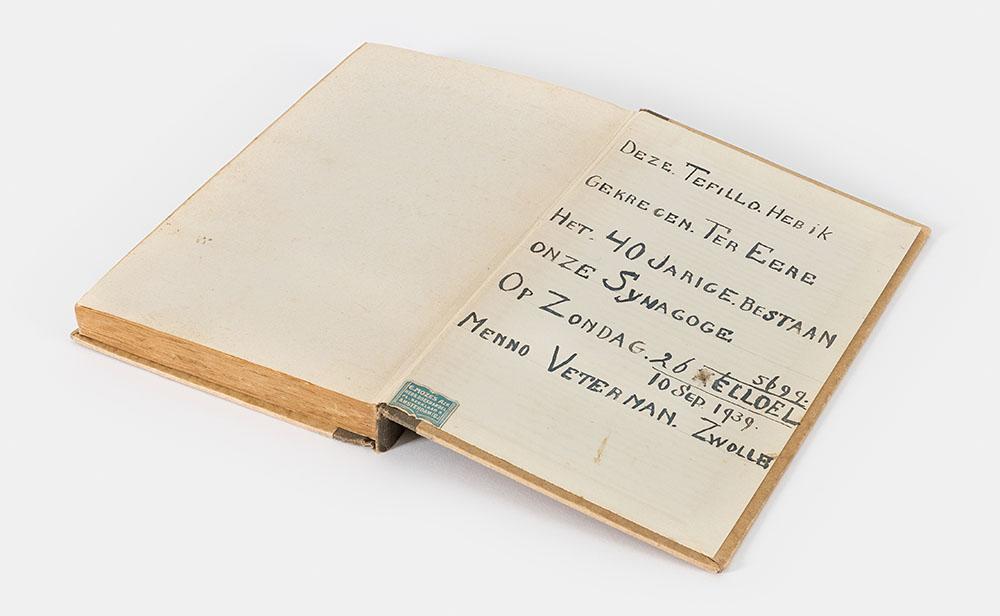 DEZE. TEFILLO. HEB IK
GEKREGEN. TER EERE
HET. 40 JARIGE. BESTAAN
ONZE SYNAGOGE
OP ZONDAG. 26 ELLOEL 5699.
10 SEP. 1939.
MENNO VETERMAN. ZWOLLE
AMSTERDAM